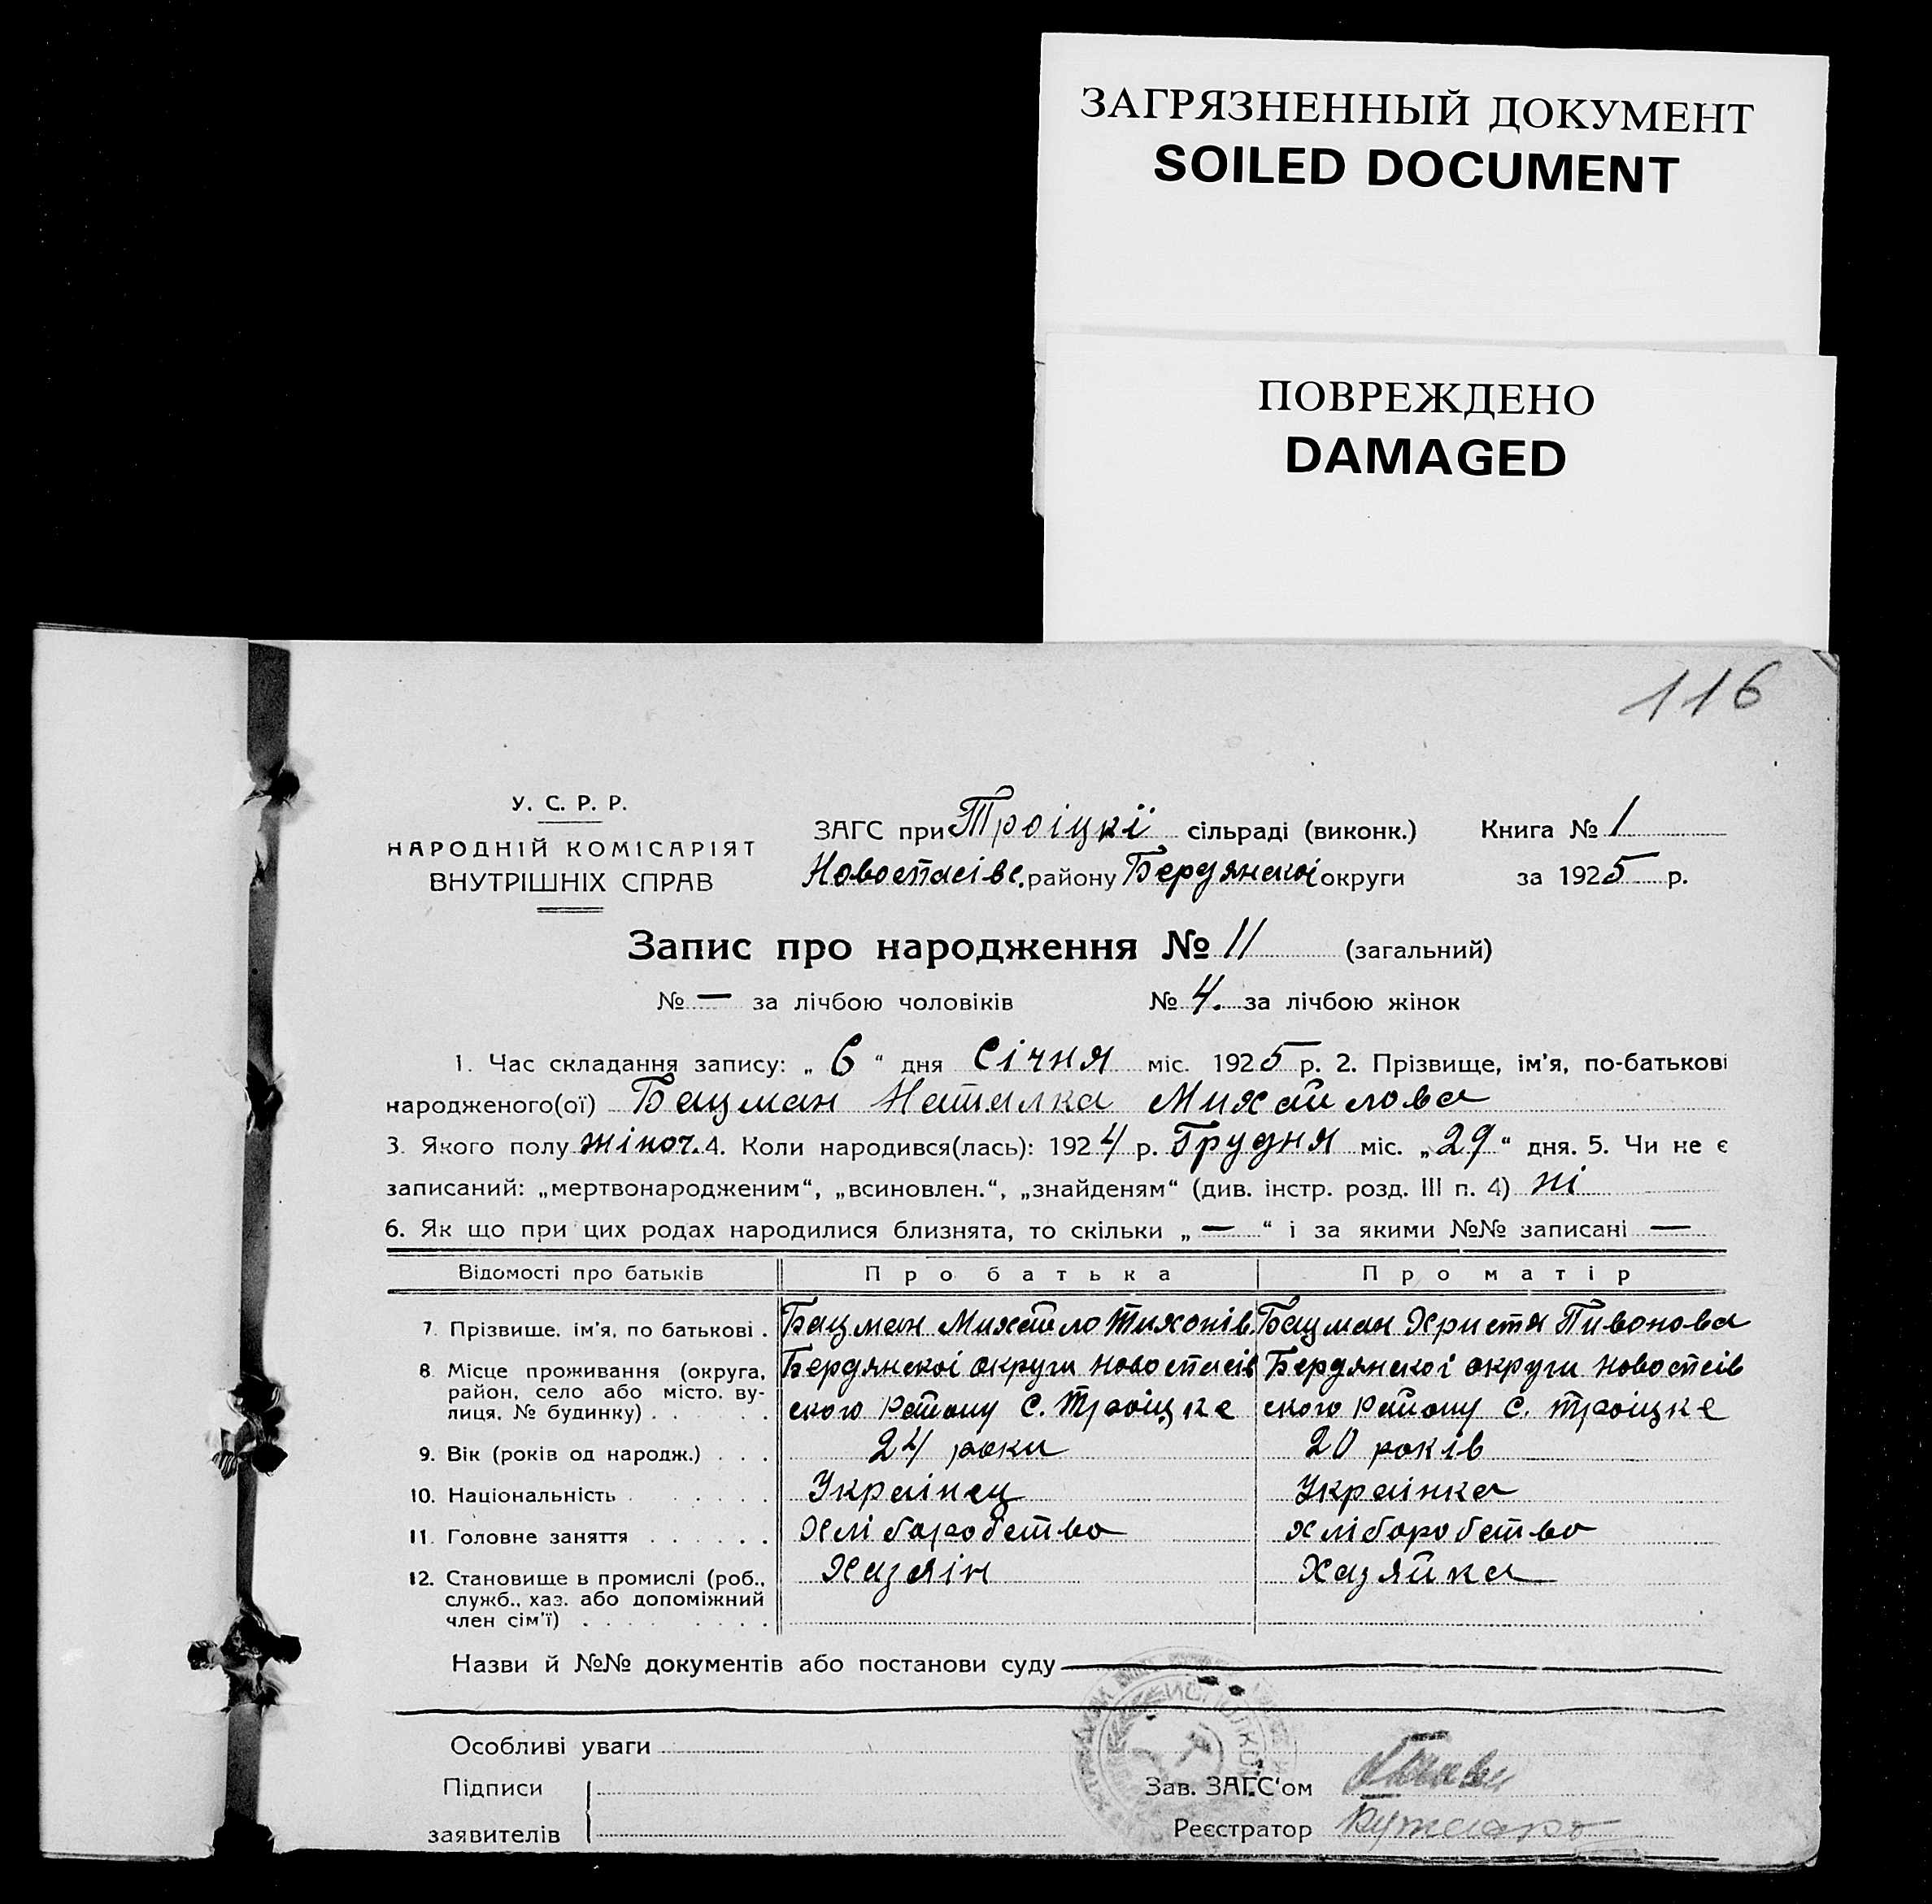 ЗАГРЯЗНЕННЫЙ ДОКУМЕНТ
SOILED DOCUMENT
ПОВРЕЖДЕНО
DAMAGED
116
У. С. Р. Р.
НАРОДНІЙ КОМІСАРІЯТ
ВНУТРІШНІХ СПРАВ
ЗАГС при Троіцкї сільраді (виконк.) Книга № 1
Новоспасівс. району Бердянскоі округи за 1925 р.
Запис про народження № 11 (загальний)
№ — за лічбою чоловіків № 4. за лічбою жінок
1. Час складання запису: „ 6 “ дня Січня міс. 1925 р. 2. Прізвище, ім’я, по-батькові
народженого(ої) Бацман Наталка Михайлова
3. Якого полу жіноч. 4. Коли народився(лась): 1924 р. Грудня міс. „29“ дня. 5. Чи не є
записаний: „мертвонародженим“, „всиновлен.“, „знайденям“ (див. інстр. розд. III п. 4) ні
6. Як що при цих родах народилися близнята, то скільки „ — “ і за якими №№ записані —
Відомості про батьків Про батька Про матір
7. Прізвище. ім’я, по батькові . Бацман Михайло Тихонів. Бацман Христя Пивонова
8. Місце проживання (округа, Бердянскоі округи новоспасів Бердянскоі округи новоспсів
район, село або місто. ву-
лиця. № будинку) . . . . . . ского району с. Троіцке ского району с. Троіцке
9. Вік (років од народж.) . . . 24 роки 20 років
10. Національність . . . . . . Украінец Украінка
11. Головне заняття . . . . . . Хліборобство хліборобство
12. Становище в промислі (роб., Хазяін Хазяйка
служб., хаз. або допоміжний
член сім’ї) . . . . . . . . .
Назви й №№ документів або постанови суду
Особливі уваги
Підписи
заявителів
Зав. ЗАГС‘ом
Реєстратор